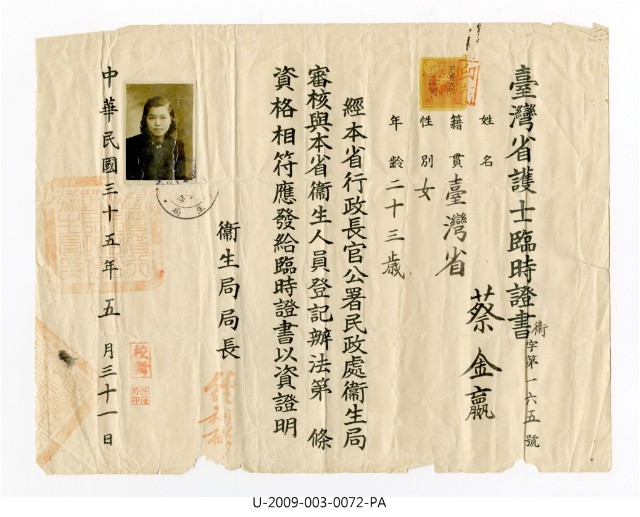 臺灣省護士臨時證書
衛字第一六五號
姓名 蔡金嬴
籍貫 臺灣省
性別 女
年齡 二十三歲
經本省行政長官公署民政處衞生局
審核與本省衞生人員登記辦法第 條
資格相符應發給臨時證書以資證明
衞生局局長
中華民國三十五年五月三十一日
U-2009-003-0072-PA